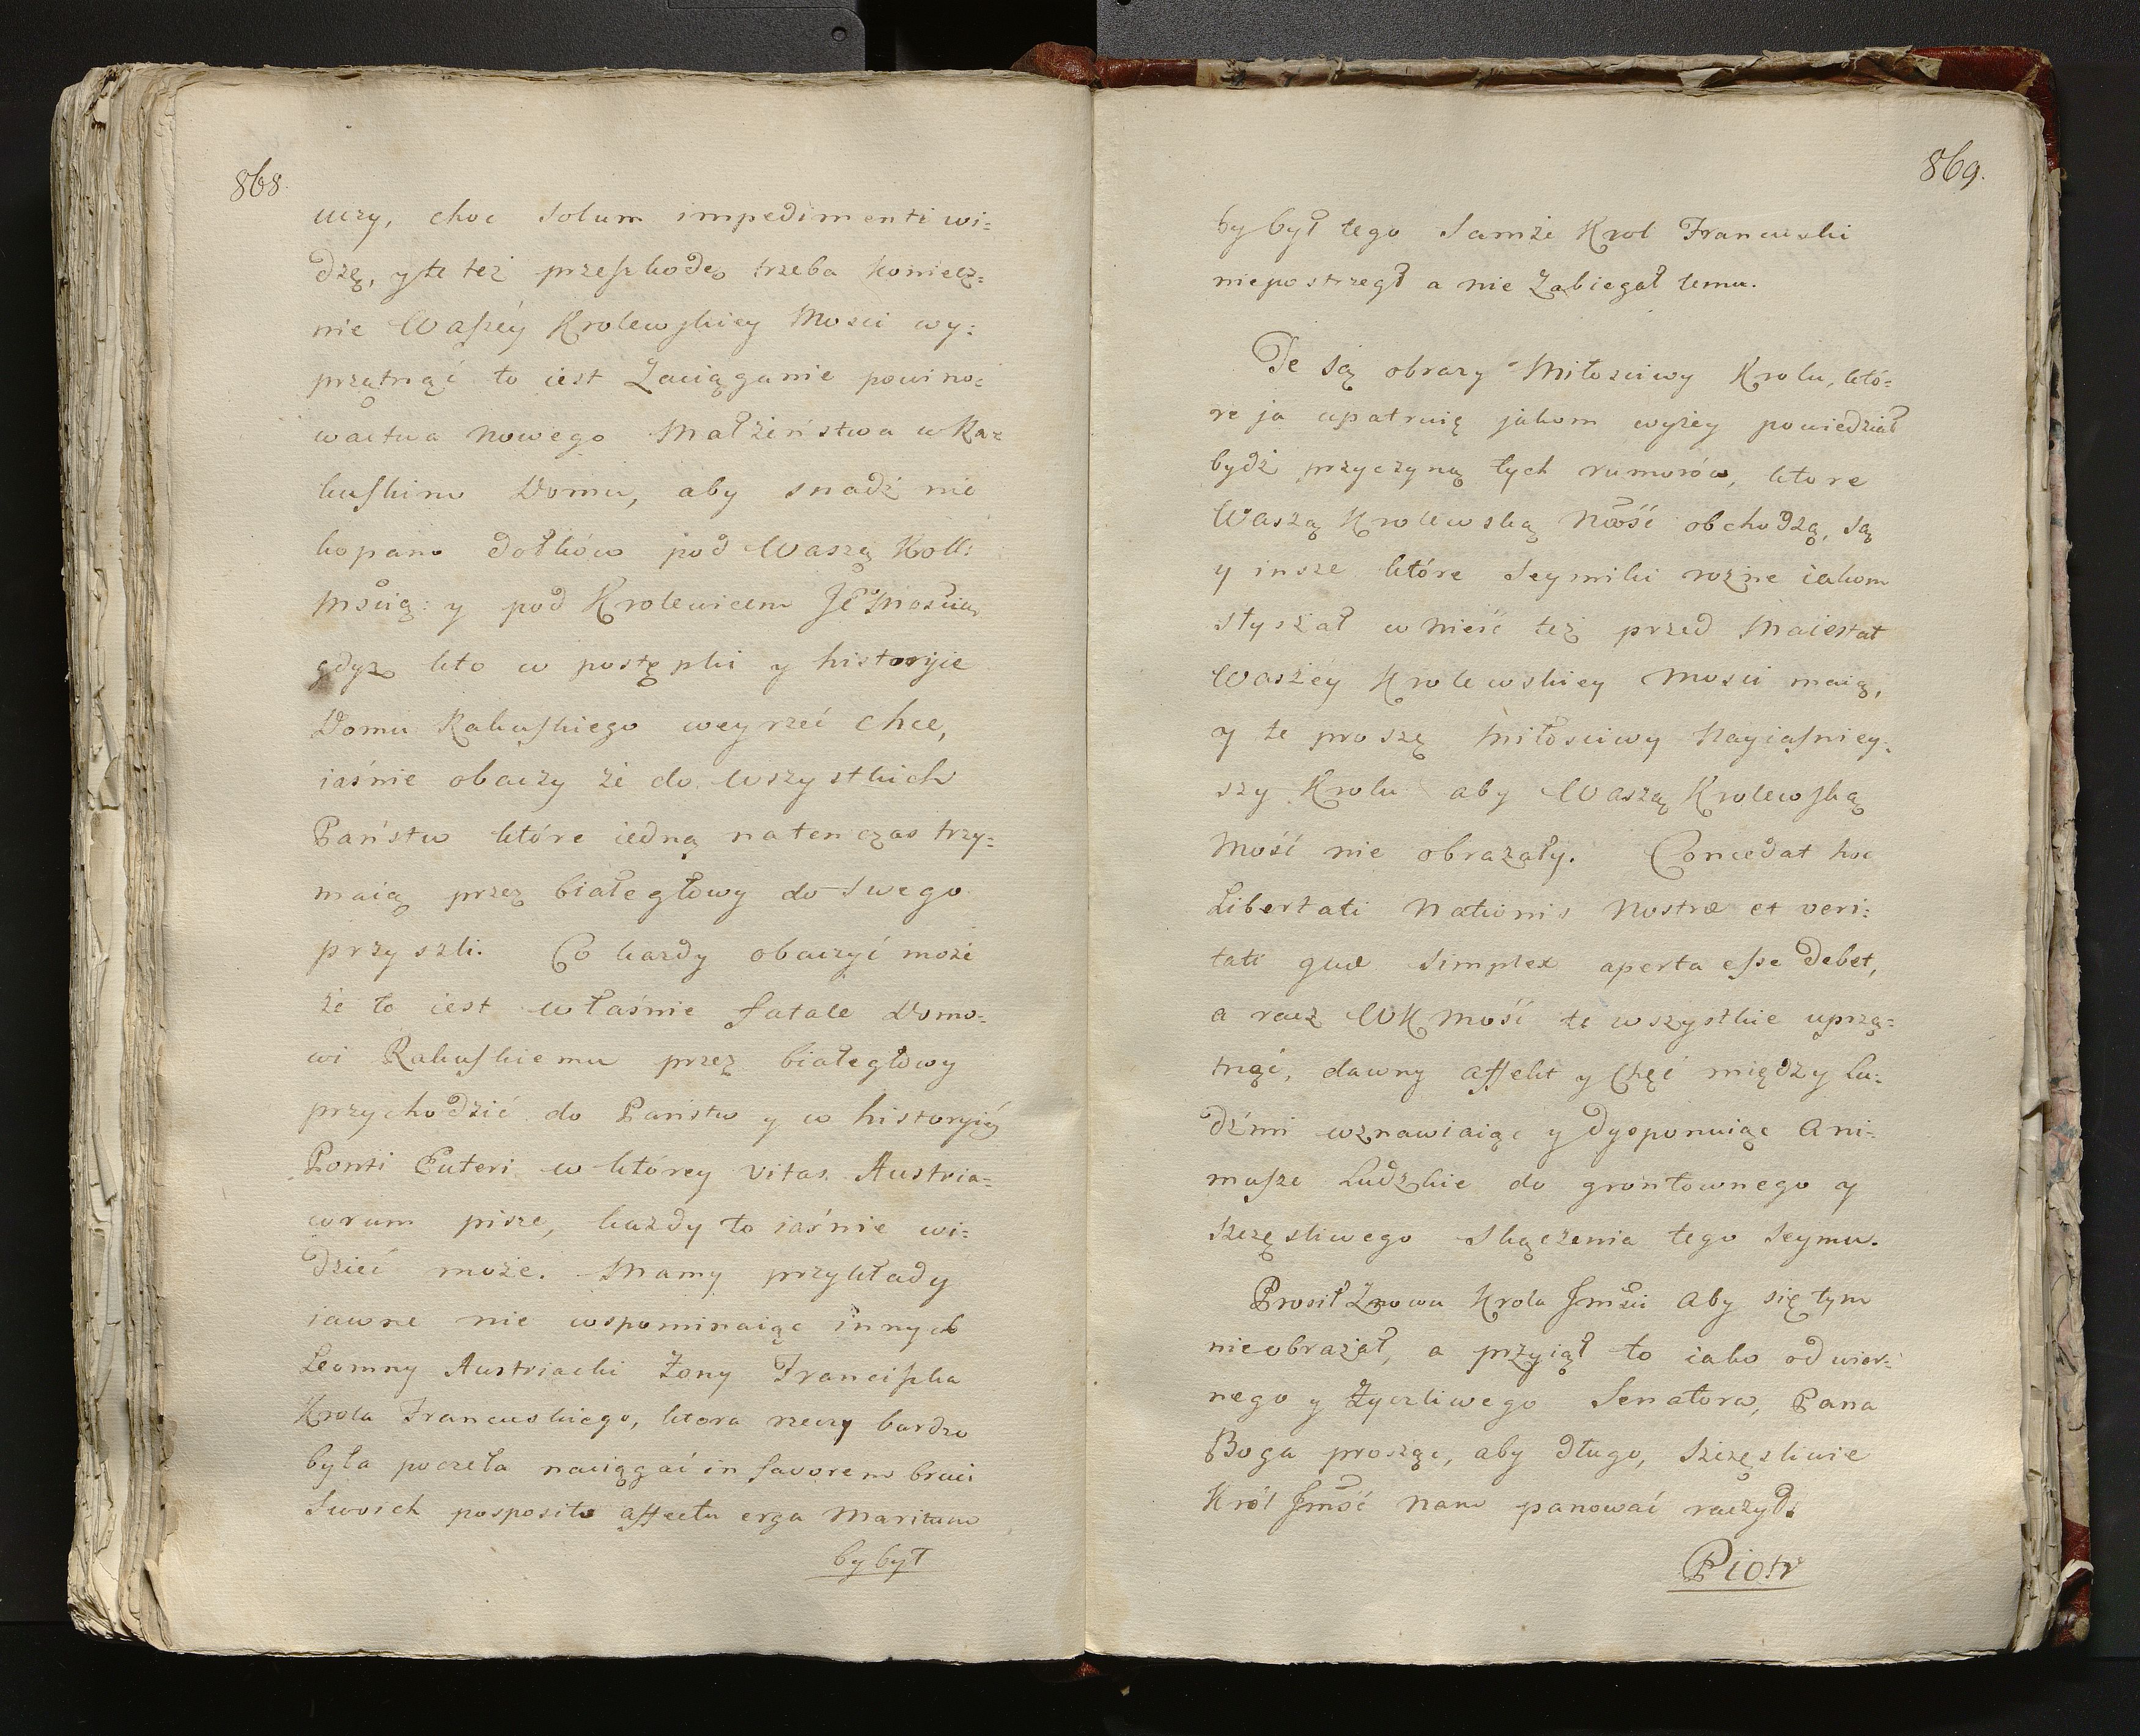 868.
uczy, choc solum impedimenti wi=
dzę, y te też przeszkodę trzeba koniecz=
nie Waszéy Krolewskiey Mosci wy=
przątnąć to iest Zaciąganie powino=
wactwa nowego Małżeństwa w Ra=
kuskim Domu, aby snadź nie
kopano dołków pod Waszą Koll:
Mścią: y pod Krolewicem Je Mością
gdyż kto w postępki y historyie
Domu Rakuskiego weyrzeć chce,
iaśnie obaczy że do wszystkich
Państw które iedną natenczas trzy=
maią przez białegłowy do swego
przyszli. Co każdy obaczyć może
że to iest właśnie fatale Domo=
wi Rakuskiemu przez białegłowy
przychodzić do Państw y w historyiéy
Ponti Euteri w którey vitas Austria=
corum pisze, każdy to iaśnie wi=
dzieć może. Mamy przykłady
iawne nie wspominaiąc innych
Leomny Austriacki Żony Franciszka
Krola Francuskiego, ktora rzeczy bardzo
była poczeła naciągać in favorem braci
Swoich posposito affectu erga Maritum
by był
869.
by był tego Samże Krol Francuski
niepostrzegł a nie Zabiegał temu.
Te są obrazy Miłosciwy Krolu, któ=
re ja upatruię jakom wyżey powiedział
bydź przyczyną tych rumorów, ktore
Waszą Krolewską Mość obchodzą, są
y insze które Seymiki rożne iakom
słyszał wnieść też przed Maiestat
Waszéy Krolewskiey Mosci maią,
y te proszę Miłosciwy Nayiasniey=
szy Krolu aby Waszą Krolewską
Mość nie obrazały. Concedat hoc
Libertati Nationis Nostræ et veri=
tati quæ simplex aperta esse debet,
a racz WKMość te wszystkie uprzą=
tnąć, dawny affekt y Chęć między Lu=
dźmi wznawiaiąc y dysponuiąc Ani=
musze Ludzkie do grontownego y
szczęsliwego skączenia tego Seymu.
Prosił Znowu Krola Jmści Aby się tym
nieobrażał, a przyiął to iako od wier=
nego y Życzliwego Senatora, Pana
Boga prosząc, aby długo, szczęsliwie
Król Jmść nam panować raczył.
Piotr